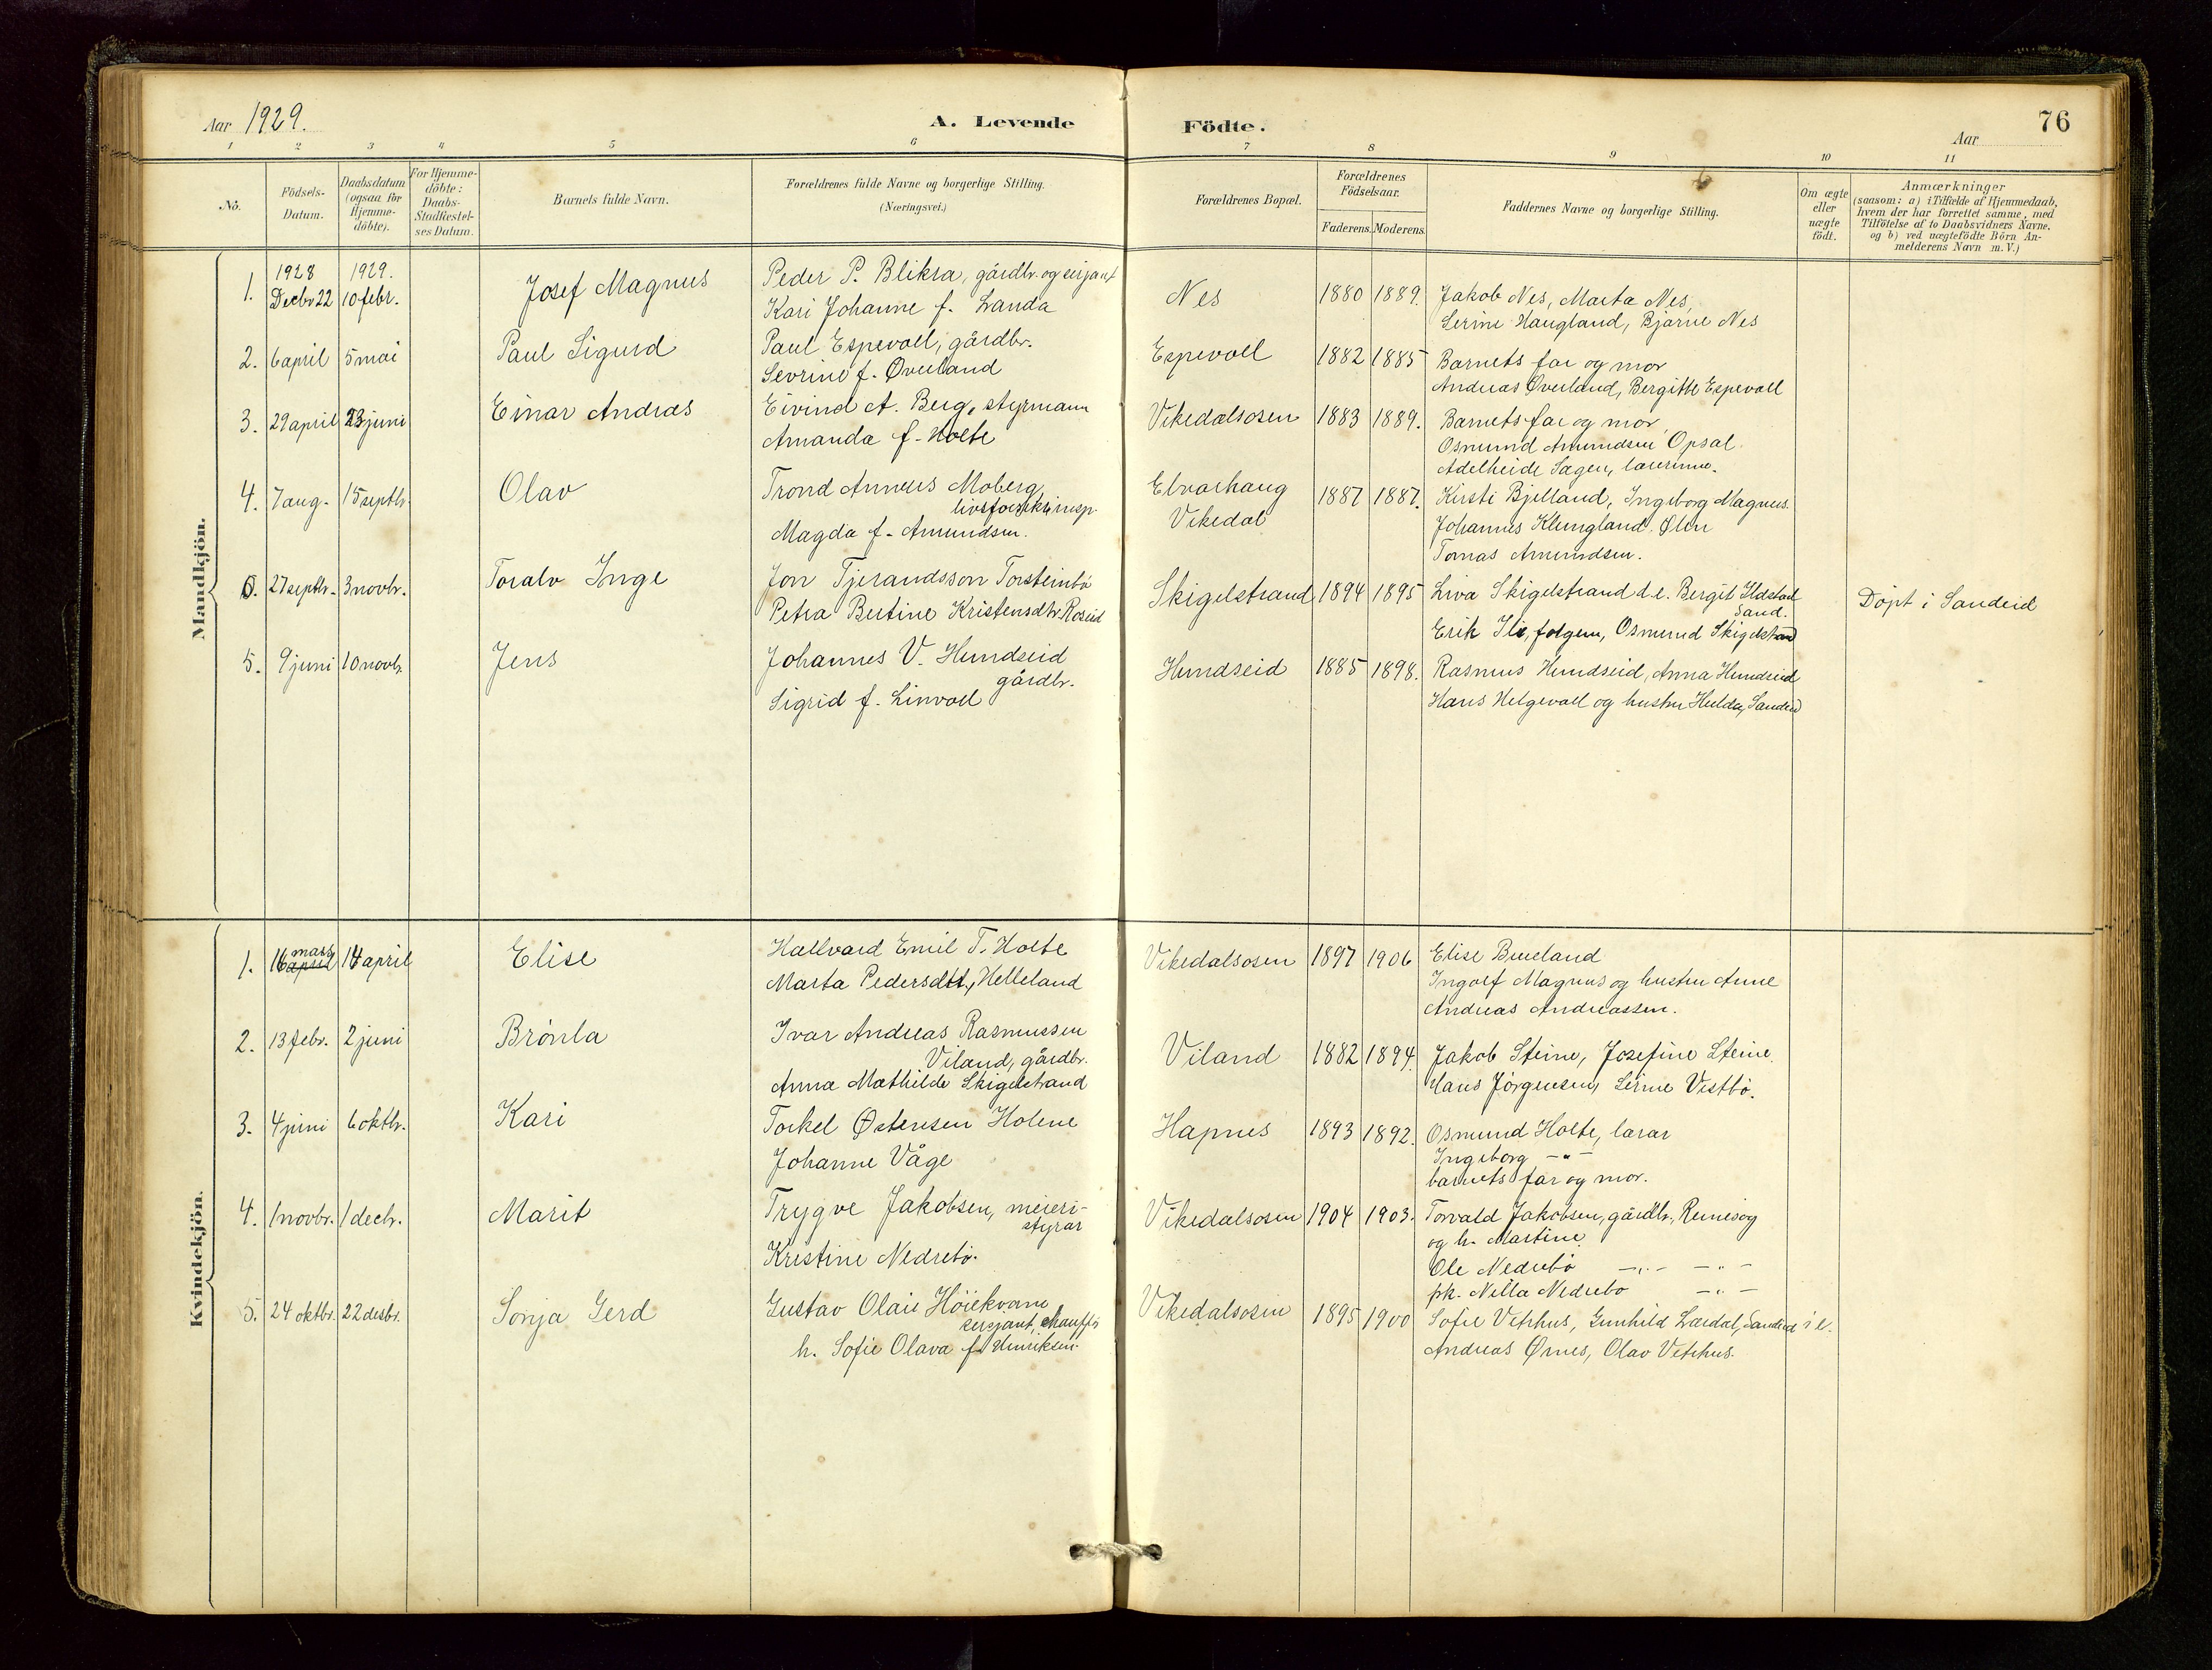 Aar 1929.
A. Levende
Födte.
Aar
76
1 2 3 4 5 6 7 8 9 10 11
No.
Födsels-
Datum.
Daabsdatum
(ogsaa for
Hjemme-
döbte).
For Hjemme-
döbte:
Daabs-
Stadfæstel-
ses Datum.
Barnets fulde Navn.
Forældrenes fulde Navne og borgerlige Stilling.
(Næringsvei.)
Forældrenes Bopæl.
Forældrenes
Födselsaar.
Faderens. Moderens.
Faddernes Navne og borgerlige Stilling.
Om ægte
eller
uægte
født.
Anmærkninger
(saasom: a) i Tilfælde af Hjemmedaab,
hvem der har forrettet samme, med
Tilföielse af to Daabsvidners Navne.
og b) ved uægtefödte Börn An-
melderens Navn m. V.)
Mandkjön.
1928 1929.
1. Decbr 22 10 febr. Josef Magnus
Peder P. Blikra, gårdbr. og serjant
Kari Johanne f. Landa
Nes 1880 1889.
Jakob Nes, Marta Nes,
Serine Haugland, Bjarne Nes
2. 6 april 5 mai Paul Sigurd
Paul Espevoll, gårdbr.
Sevrine f. Øverland
Espevoll 1882 1885
Barnets far og mor
Andreas Øverland, Bergitte Espevoll
3. 29 april 23 juni Einar Andras
Eivind A. Berg, styrmann
Amanda f. Holte
Vikedalsosen 1883 1889.
Barnets far og mor,
Osmund Amundsen Opsal
Adelheide Sagen, lærerinne.
4. 7 aug. 15 septbr. Olav
Trond Anneus Moberg,
livsforsikr. insp.
Magda f. Amundsen.
Elvarhaug
Vikedal
1887 1887.
Kirsti Bjelland, Ingeborg Magnus.
Johannes Klungland. Ølen
Tomas Amundsen.
6. 27 septbr. 3 novbr. Toralv Inge
Jon Tjerandsson Torsteinbö
Petra Bertine Kristensdtr. Roseid
Skigelstrand 1894 1895
Liva Skigelstrand d.e. Bergit Ildstad
Sand.
Erik Ile, Osmund Skigelstrand
Döpt i Sandeid
5. 9 juni 10 novbr. Jens
Johannes V. Hundseid
gårdbr.
Sigrid f. Linvoll
Hundseid 1885 1898.
Rasmus Hundseid, Anna Hundseid
Hans Helgevoll og hustru Hulda, Sandeid
Kvindekjön.
1. 16 mars april 14 april Elise
Hallvard Emil T. Holte
Marta Pedersdtt., Helleland
Vikedalsosen 1897 1906
Elise Bueland
Ingolf Magnus og hustru Anne
Andreas Andreassen.
2. 13 febr. 2 juni Brönla
Ivar Andreas Rasmussen
Viland, gårdbr.
Anna Mathilde Skigelstrand
Viland 1882 1894.
Jakob Steine, Josefine Steine.
Hans Jörgensen, Serine Vestbö.
3. 4 juni 6 oktbr. Kari
Torkel Østensen Holene
Johanne Våge
Hapnes 1893 1892.
Osmund Holte, lærar
Ingeborg – " –
barnets far og mor.
4. 1 novbr. 1 decbr. Marit
Trygve Jakobsen, meieri-
styrar
Kristine Nedrebö.
Vikedalsosen 1904 1903.
Torvald Jakobsen, gårdbr.,
og h. Martine
Ole Nedrebö – " – – " –
pk. Nilla Nedrebö – " –
5. 24 oktbr. 22 desbr. Sonja Gerd
Gustav Olai Höiekvam
sersjant, chaufför
h. Sofie Olava f. Henriksen.
Vikedalsosen 1895 1900
Sofie Vetrhus, Gunhild Lærdal, Sandeid
Andreas Ørnes, Olav Vetrhus.